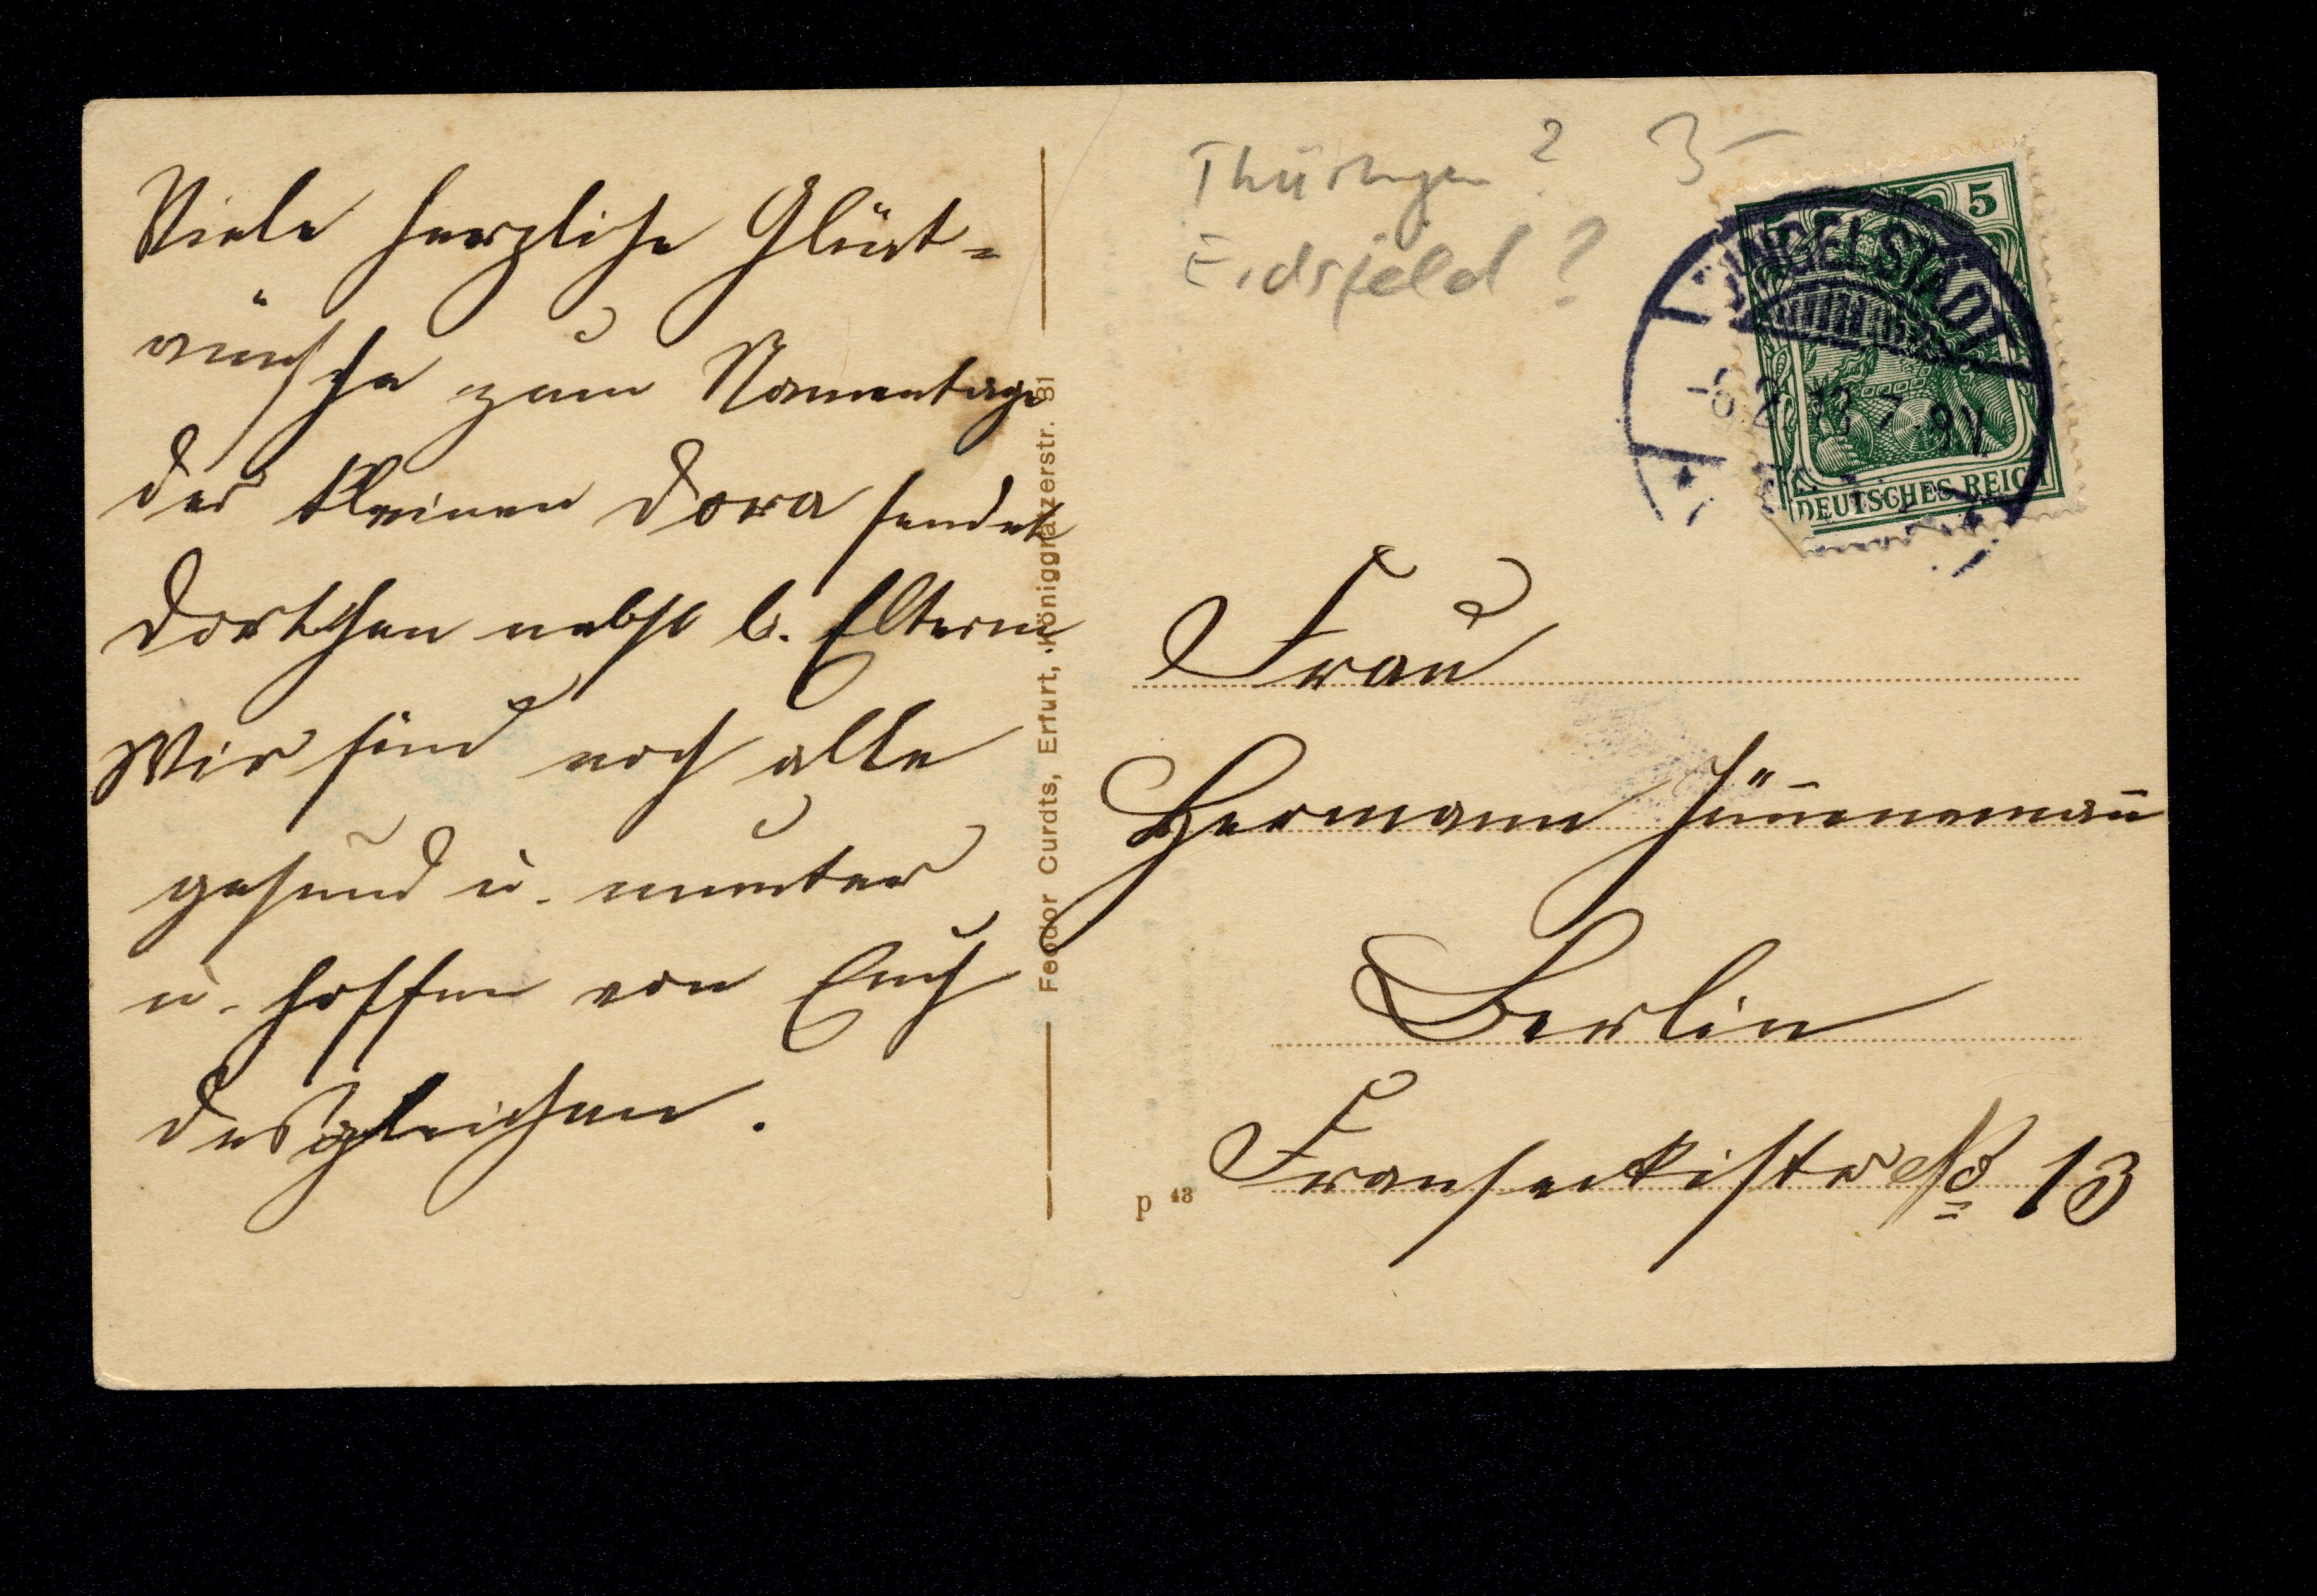 Viele herzliche Glück=
wünsche zum Namentage
der kleinen Dora sendet
Dorthen nebst l. Eltern
Wir sind noch alle
gesund u. munter
u. hoffen von Euch
desgleichen.
Feodor Curdts, Erfurt, Königgrätzerstr. 31
Thüringen ? 3-
Eidsfeld ?
5
DINGELSTÄDT
-6.2.13.7-8V.
DEUTSCHES REICH
Frau
Hermann Jünemann
Berlin
Franseckistr No 13
p 43